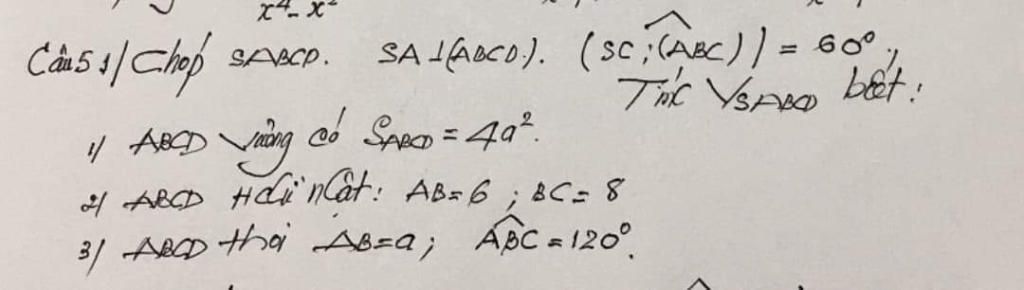 x⁴ - x²
Câu 5 1/ Chóp SABCD. SA ⊥ (ABCD). (SC; (ABC)) = 60°;
Tính V_SABCD biết:
1/ ABCD vuông có S_ABCD = 4a².
2/ ABCD H chữ nhật: AB = 6 ; BC = 8
3/ ABCD thoi AB = a; ABC = 120°.